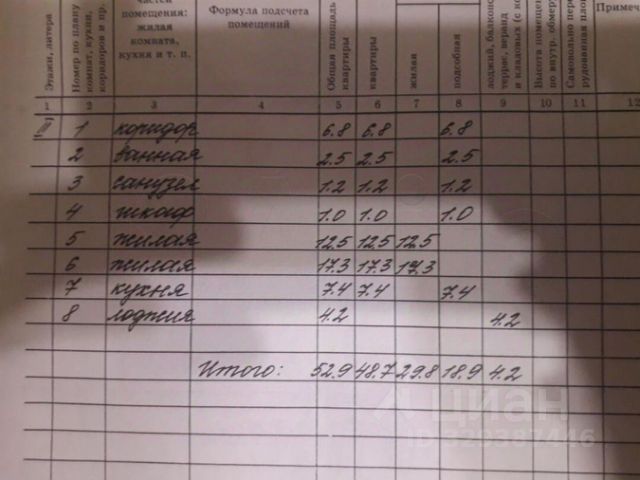 Этажи, литера
Номер по плану комнат, кухни, коридоров и пр.
частей помещения: жилая комната, кухня и т. п.
Формула подсчета помещений
Общая площадь квартиры
квартиры
жилая
подсобная
лоджий, балконов террас, веранд и кладовых (с к
Высота помещен по внутр. обмеру
Самовольно пере рудованная пло
Примеч
1 2 3 4 5 6 7 8 9 10 11 12
1 коридор 6.8 6.8 6.8
2 ванная 2.5 2.5 2.5
3 санузел 1.2 1.2 1.2
4 шкаф 1.0 1.0 1.0
5 жилая 12.5 12.5 12.5
6 жилая 17.3 17.3 17.3
7 кухня 7.4 7.4 7.4
8 лоджия 4.2 4.2
Итого: 52.9 48.7 29.8 18.9 4.2
циан
ID 329387446